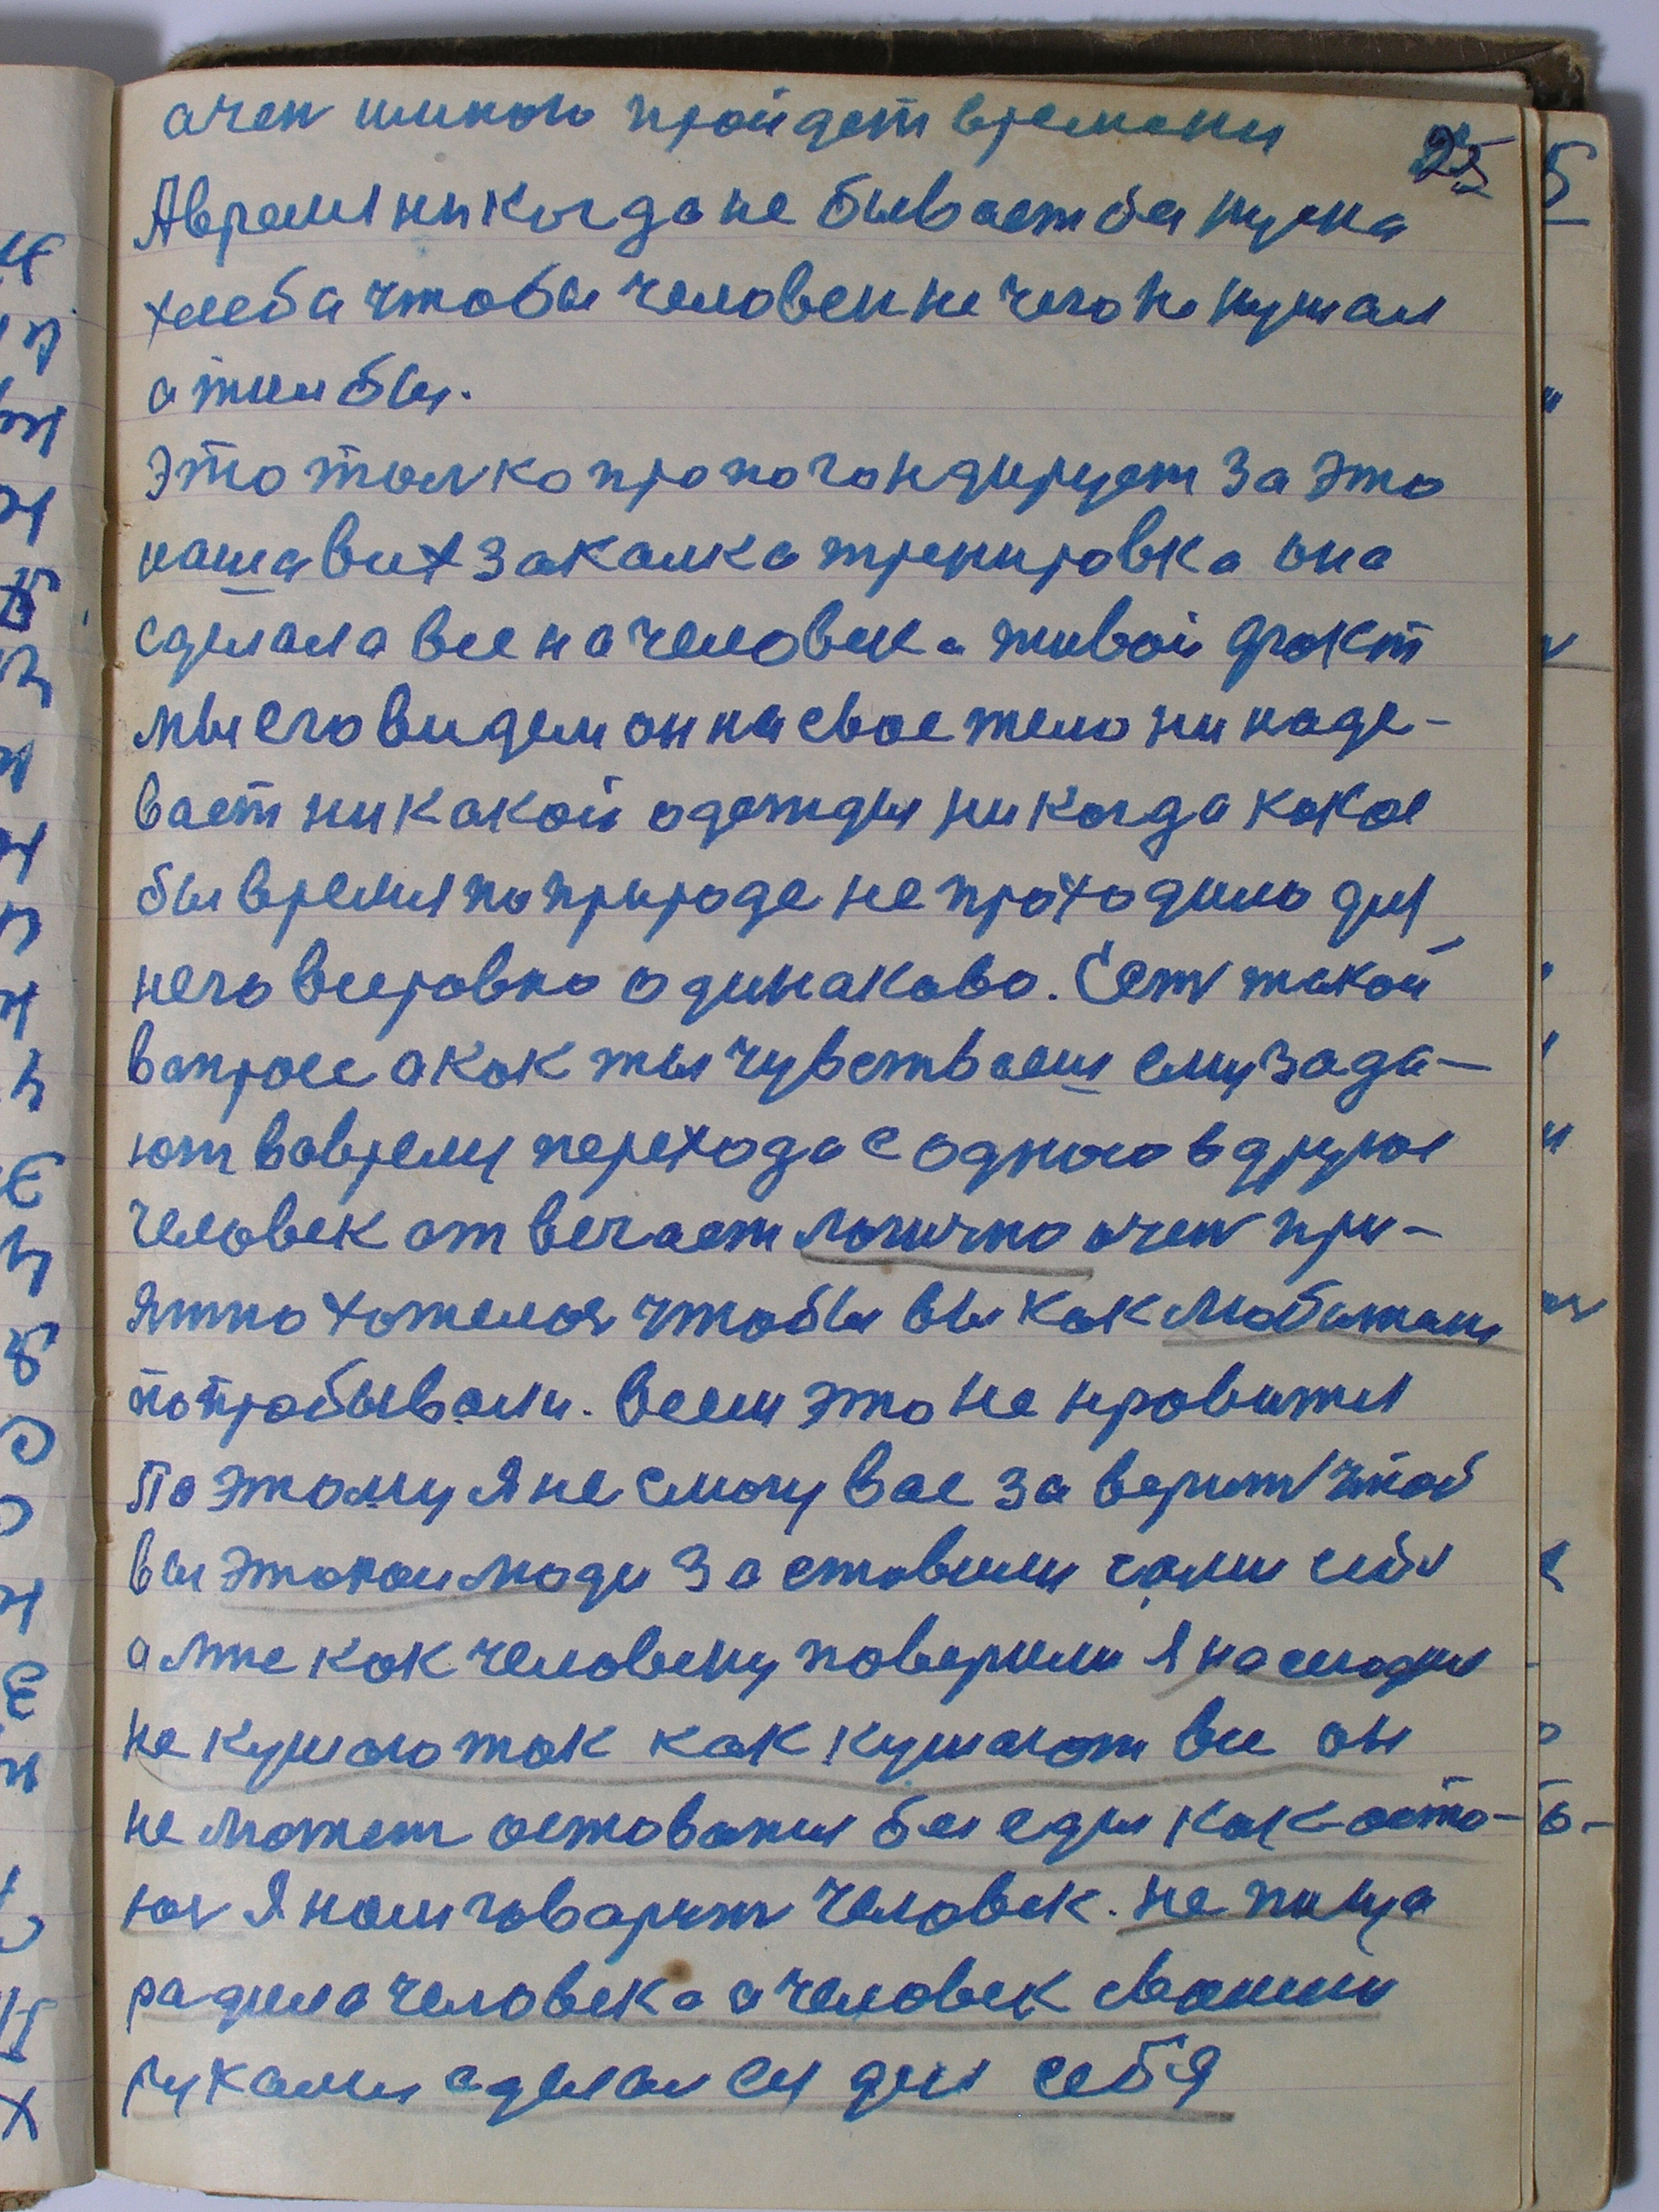 очен много пройдет времени
25
А время никогда не бывает без куска
хлеба чтобы человек не чего не кушал
а жил бы.
Это толко пропогондирует за это
наша вих закалка тренировка она
сделала все на человека живой факт
мы его видем он на свое тело ни наде-
вает никакой одежды никогда какое
бы время по природе не проходило для
него всеровно одинаково. Есть такой
вопрос а как ты чувствваеш ему зада-
ют вовремя перехода с одного в другое
человек отвечает логично очен при-
ятно хотелос чтобы вы как любители
попробывали. Всем это не нравится
Поэтому я не смогу вас заверить чтоб
вы этокои люди заставили сами себя
а мне как человеку поверили Я на сегодня
не кушаю так как кушают все он
не может оставатся без еды как оста-
юс Я нам говорит человек. Не пища
радила человека а человек своими
руками сделал ея для себя